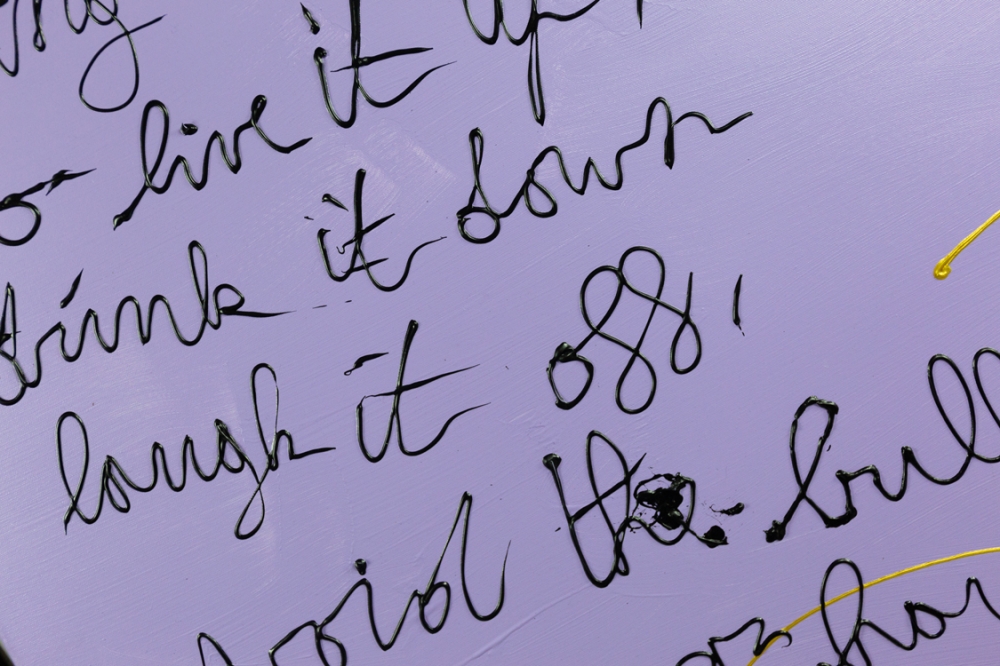 live it up
drink it down
laugh it off'
avoid the bull